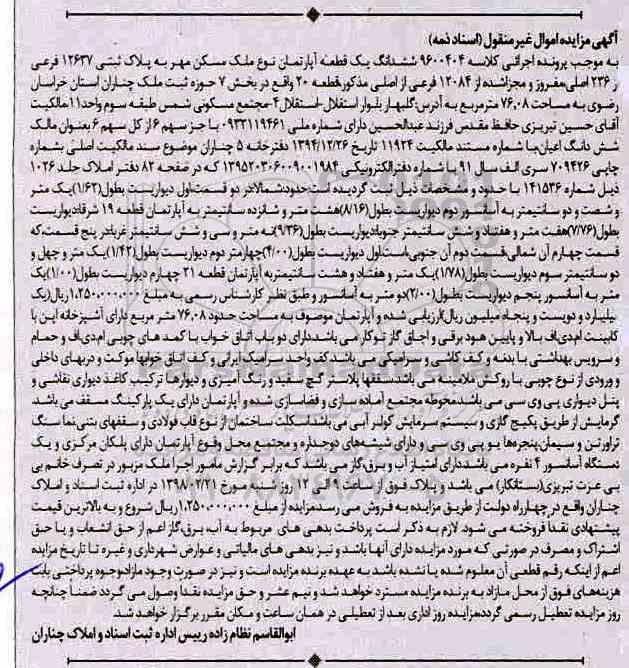 آگهی مزایده اموال غیر منقول (اسناد ذمه)
به موجب پرونده اجرائی کلاسه ۹۶۰۰۴۰۴ ششدانگ یک قطعه آپارتمان نوع ملک مسکن مهر به پلاک ثبتی ۱۲۶۳۷ فرعی
از ۲۳۶ اصلی مفروز و مجزاشده از ۱۲۰۸۴ فرعی از اصلی مذکور،قطعه ۲۰ واقع در بخش ۷ حوزه ثبت ملک چناران استان خراسان
رضوی به مساحت ۷۶,۰۸ مترمربع به آدرس:گلبهار بلوار استقلال-استقلال۴-مجتمع مسکونی شمس طبقه سوم واحد۱۱مالکیت
آقای حسین تبریزی حافظ مقدس فرزند عبدالحسین دارای شماره ملی ۰۹۳۳۱۱۹۴۶۱ با جز سهم ۶ از کل سهم ۶ بعنوان مالک
شش دانگ اعیان،با شماره مستند مالکیت ۱۱۹۲۴ تاریخ ۱۳۹۴/۱۲/۲۶ دفترخانه ۵ چناران موضوع سند مالکیت اصلی بشماره
چاپی ۷۰۹۴۲۶ سری الف سال ۹۱ با شماره دفترالکترونیکی ۱۳۹۵۲۰۳۰۶۰۰۹۰۰۱۹۸۴ که در صفحه ۸۲ دفتر املاک جلد ۱۰۲۶
ذیل شماره ۱۴۱۵۳۶ با حدود و مشخصات ذیل ثبت گردیده است:حدود:شمالا:در دو قسمت،اول دیواریست بطول(۱/۶۲)یک متر
و شصت و دو سانتیمتر به آسانسور دوم دیواریست بطول(۸/۱۶)هشت متر و شانزده سانتیمتر به آپارتمان قطعه ۱۹ شرقا:دیواریست
بطول(۷/۷۶)هفت متر و هفتاد و شش سانتیمتر جنوبا:دیواریست بطول(۹/۳۶)نه متر و سی و شش سانتیمتر غربا:در پنج قسمت،که
قسمت چهارم آن شمالی،قسمت دوم آن جنوبی،است،اول دیواریست بطول(۴/۰۰)چهارمتر دوم دیواریست بطول(۱/۴۲)یک متر و چهل و
دو سانتیمتر سوم دیواریست بطول(۱/۷۸)یک متر و هفتاد و هشت سانتیمتربه آپارتمان قطعه ۲۱ چهارم دیواریست بطول(۱/۰۰)یک
متر به آسانسور پنجم دیواریست بطول(۲/۰۰)دو متر به آسانسور و طبق نظر کارشناس رسمی به مبلغ ۱,۲۵۰,۰۰۰,۰۰۰ریال(یک
میلیارد و دویست و پنجاه میلیون ریال)ارزیابی شده و آپارتمان موصوف به مساحت حدود ۷۶,۰۸ متر مربع دارای آشپزخانه اپن با
کابینت ام‌دی‌اف بالا و پایین هود برقی و اجاق گاز توکار می باشد،دارای دو باب اتاق خواب با کمد های چوبی ام‌دی‌اف و حمام
و سرویس بهداشتی با بدنه و کف کاشی و سرامیکی می باشد.کف واحد سرامیک ایرانی و کف اتاق خوابها موکت و دربهای داخلی
و ورودی از نوع چوبی با روکش ملامینه می باشد.سقفها پلاستر گچ سفید و رنگ آمیزی و دیوارها ترکیب کاغذ دیواری نقاشی و
پنل دیواری پی وی سی می باشد.محوطه مجتمع آماده سازی و فضاسازی شده و آپارتمان دارای یک پارکینگ مسقف می باشد.
گرمایش از طریق پکیج گازی و سیستم سرمایش کولر آبی می باشد.اسکلت ساختمان از نوع قاب فولادی و سقفهای بتنی،نما سنگ
تراورتن و سیمان،پنجره‌ها یو پی وی سی و دارای شیشه‌های دوجداره و مجتمع محل وقوع آپارتمان دارای پلکان مرکزی و یک
دستگاه آسانسور ۴ نفره می باشد.دارای امتیاز آب و برق،گاز می باشد که برابر گزارش مامور اجرا ملک مزبور در تصرف خانم بی
بی عزت تبریزی(بستانکار) می باشد و پلاک فوق از ساعت ۹ الی ۱۲ روز شنبه مورخ ۱۳۹۸/۰۲/۲۱ در اداره ثبت اسناد و املاک
چناران واقع در چهارراه دولت از طریق مزایده به فروش می رسد.مزایده از مبلغ ۱,۲۵۰,۰۰۰,۰۰۰ریال شروع و به بالاترین قیمت
پیشنهادی نقدا فروخته می شود. لازم به ذکر است پرداخت بدهی های مربوط به آب ،برق،گاز اعم از حق انشعاب و یا حق
اشتراک و مصرف در صورتی که مورد مزایده دارای آنها باشد و نیز بدهی های مالیاتی و عوارض شهرداری و غیره تا تاریخ مزایده
اعم از اینکه رقم قطعی آن معلوم شده یا نشده باشد به عهده برنده مزایده است و نیز در صورت وجود مازاد،وجوه پرداختی بابت
هزینه‌های فوق از محل مازاد به برنده مزایده مسترد خواهد شد و نیم عشر و حق مزایده نقدا وصول می گردد ضمناً چنانچه
روز مزایده تعطیل رسمی گردد،مزایده روز اداری بعد از تعطیلی در همان ساعت و مکان مقرر برگزار خواهد شد.
ابوالقاسم نظام زاده رییس اداره ثبت اسناد و املاک چناران